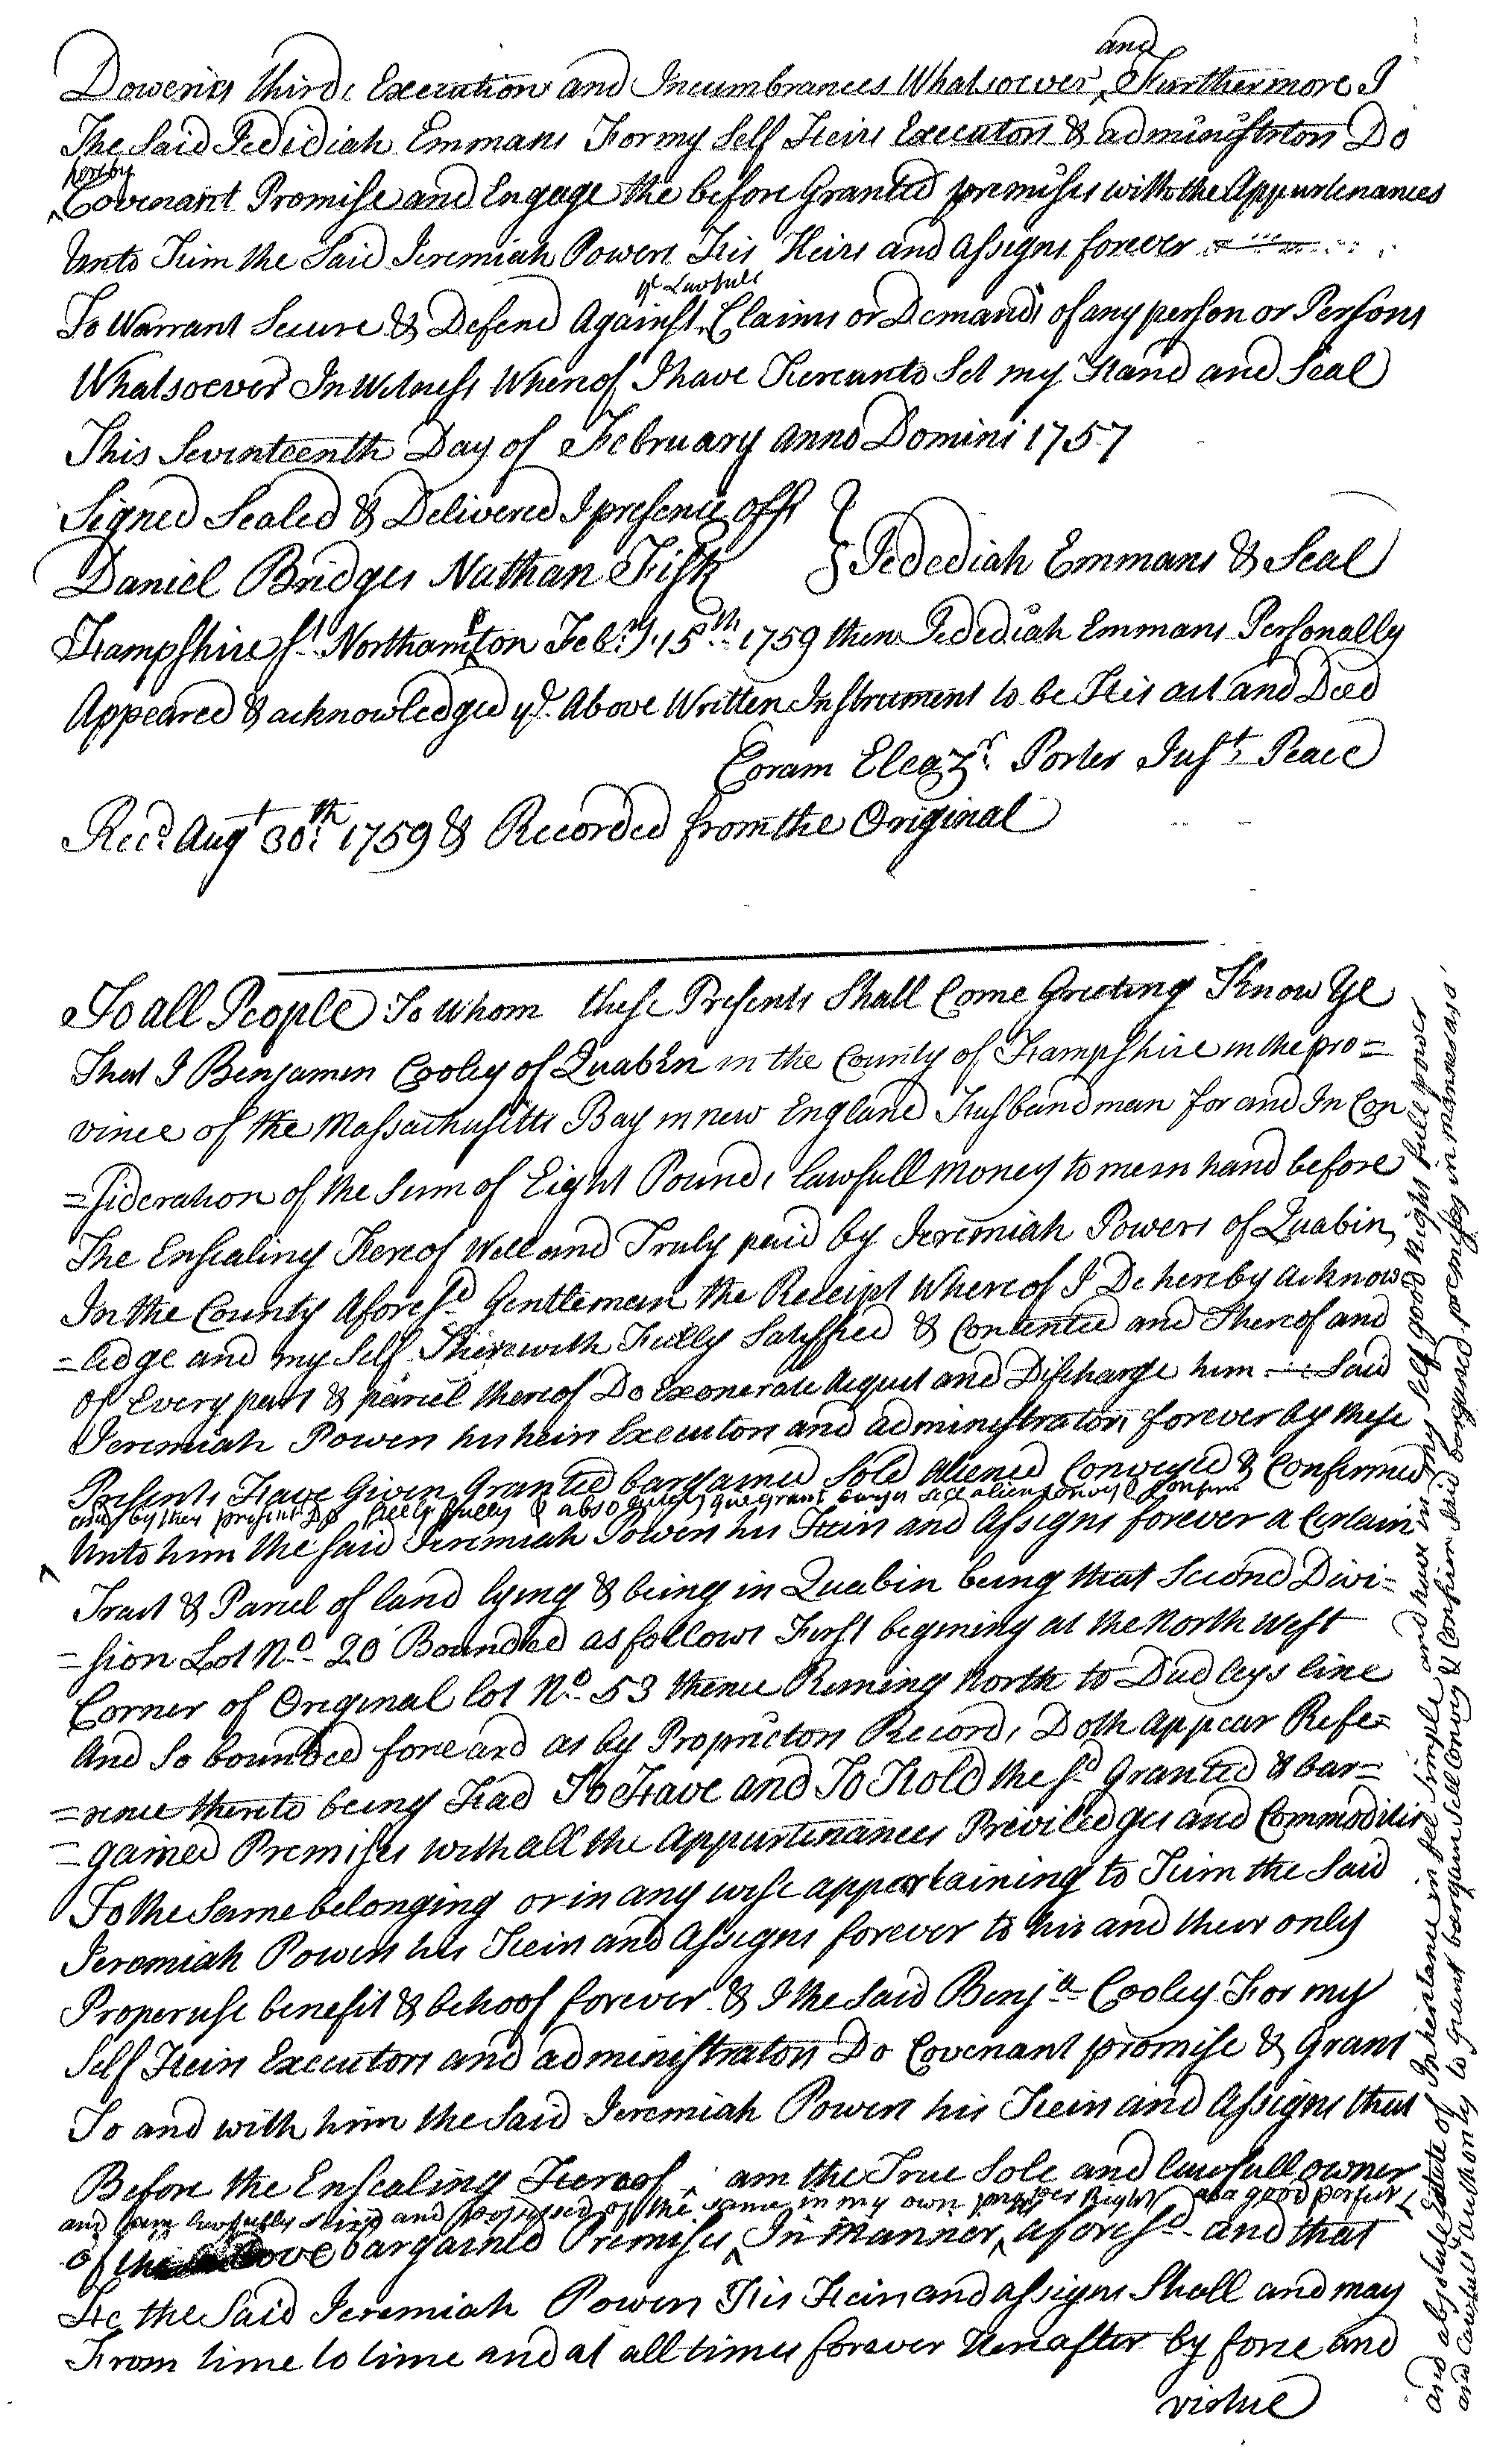 and
Doweries third, Execution and Incumbrances Whatsoever Furthermore I
The Said Jedidiah Emmans For my Self Heirs Executors & administrors Do
hereby
Covenant Promise and Engage the before Granted premises with the Appurtenances
Unto Him the Said Jeremiah Powers His Heirs and assigns forever
ye Lawfull
To Warrant Secure & Defend Against Claims or Demands of any person or Persons
Whatsoever In Witness Whereof I have Hereunto Set my Hand and Seal
This Seventeenth Day of February anno Domini 1757
Signed Sealed & Delivered I presence off
Daniel Bridges Nathan Fisk Jedediah Emmans & Seal
Hampshire ss Northampton Febry 15th 1759 then Jedediah Emmans Personally
Appeared & acknowledged ye Above Written Instrument to be His act and Deed
Coram Eleazr Porter Just Peace
Recd Augt 30th 1759 & Recorded from the Original
To all People To Whom these Presents Shall Come Greeting Know Ye
That I Benjamen Cooley of Quabin in the County of Hampshire in the pro=
vince of the Massachusetts Bay in new England Husbandman for and In Con
=sideration of the Sum of Eight Pounds lawfull money to me in hand before
The Ensealing Hereof Well and Truly paid by Jeremiah Powers of Quabin
In the County Aforesd Gentleman the Receipt Whereof I Do hereby acknow
=ledge and my Self Therewith Fully Satisfied & Contented and Thereof and
of Every part & parcel thereof Do Exonerate Acquit and Discharge him Said
Jeremiah Powers his heirs Executors and administrators forever by these
Presents Have Given Granted bargained Sold Aliened Conveyed & Confirmed
and by these presents Do freely fully & absolutely give grant bargn sell alien convey & confirm
Unto him the Said Jeremiah Powers his Heirs and Assigns forever a Certain
Tract & Parcel of land lying & being in Quabin being that Second Divi=
=sion Lot No 20 Bounded as follows First begining at the North West
Corner of Original lot No 53 thence Runing North to Dudleys line
And So bounded foreard as by Proprietors Records Doth Appear Refe=
=rence thereto being Had To Have and To Hold the sd Granted & bar=
=gained Premises with all the Appurtenances Priviledges and Commodities
To the Same belonging or in any wise appertaining to Him the Said
Jeremiah Powers his Heirs and Assigns forever to his and their only
Proper use benefit & behoof forever & I the Said Benja Cooley For my
Self Heirs Executors and administrators Do Covenant promise & Grant
To and with him the Said Jeremiah Powers his Heirs and Assigns that
Before the Ensealing Hereof am the True Sole and lawfull owner
and am lawfully seizd and possessed of the same in my own proper Right as a good perfect
of the above bargained Premises In Manner aforesd and that
He the Said Jeremiah Powers His Heirs and assigns Shall and may
From time to time and at all times forever Hereafter by force and
virtue
and absolute Estate of Inheritance in fee Simple and have in my Self good Right full power
and lawfull Authority to grant bargain Sell Convey & Confirm said bargained premises in manner as afo